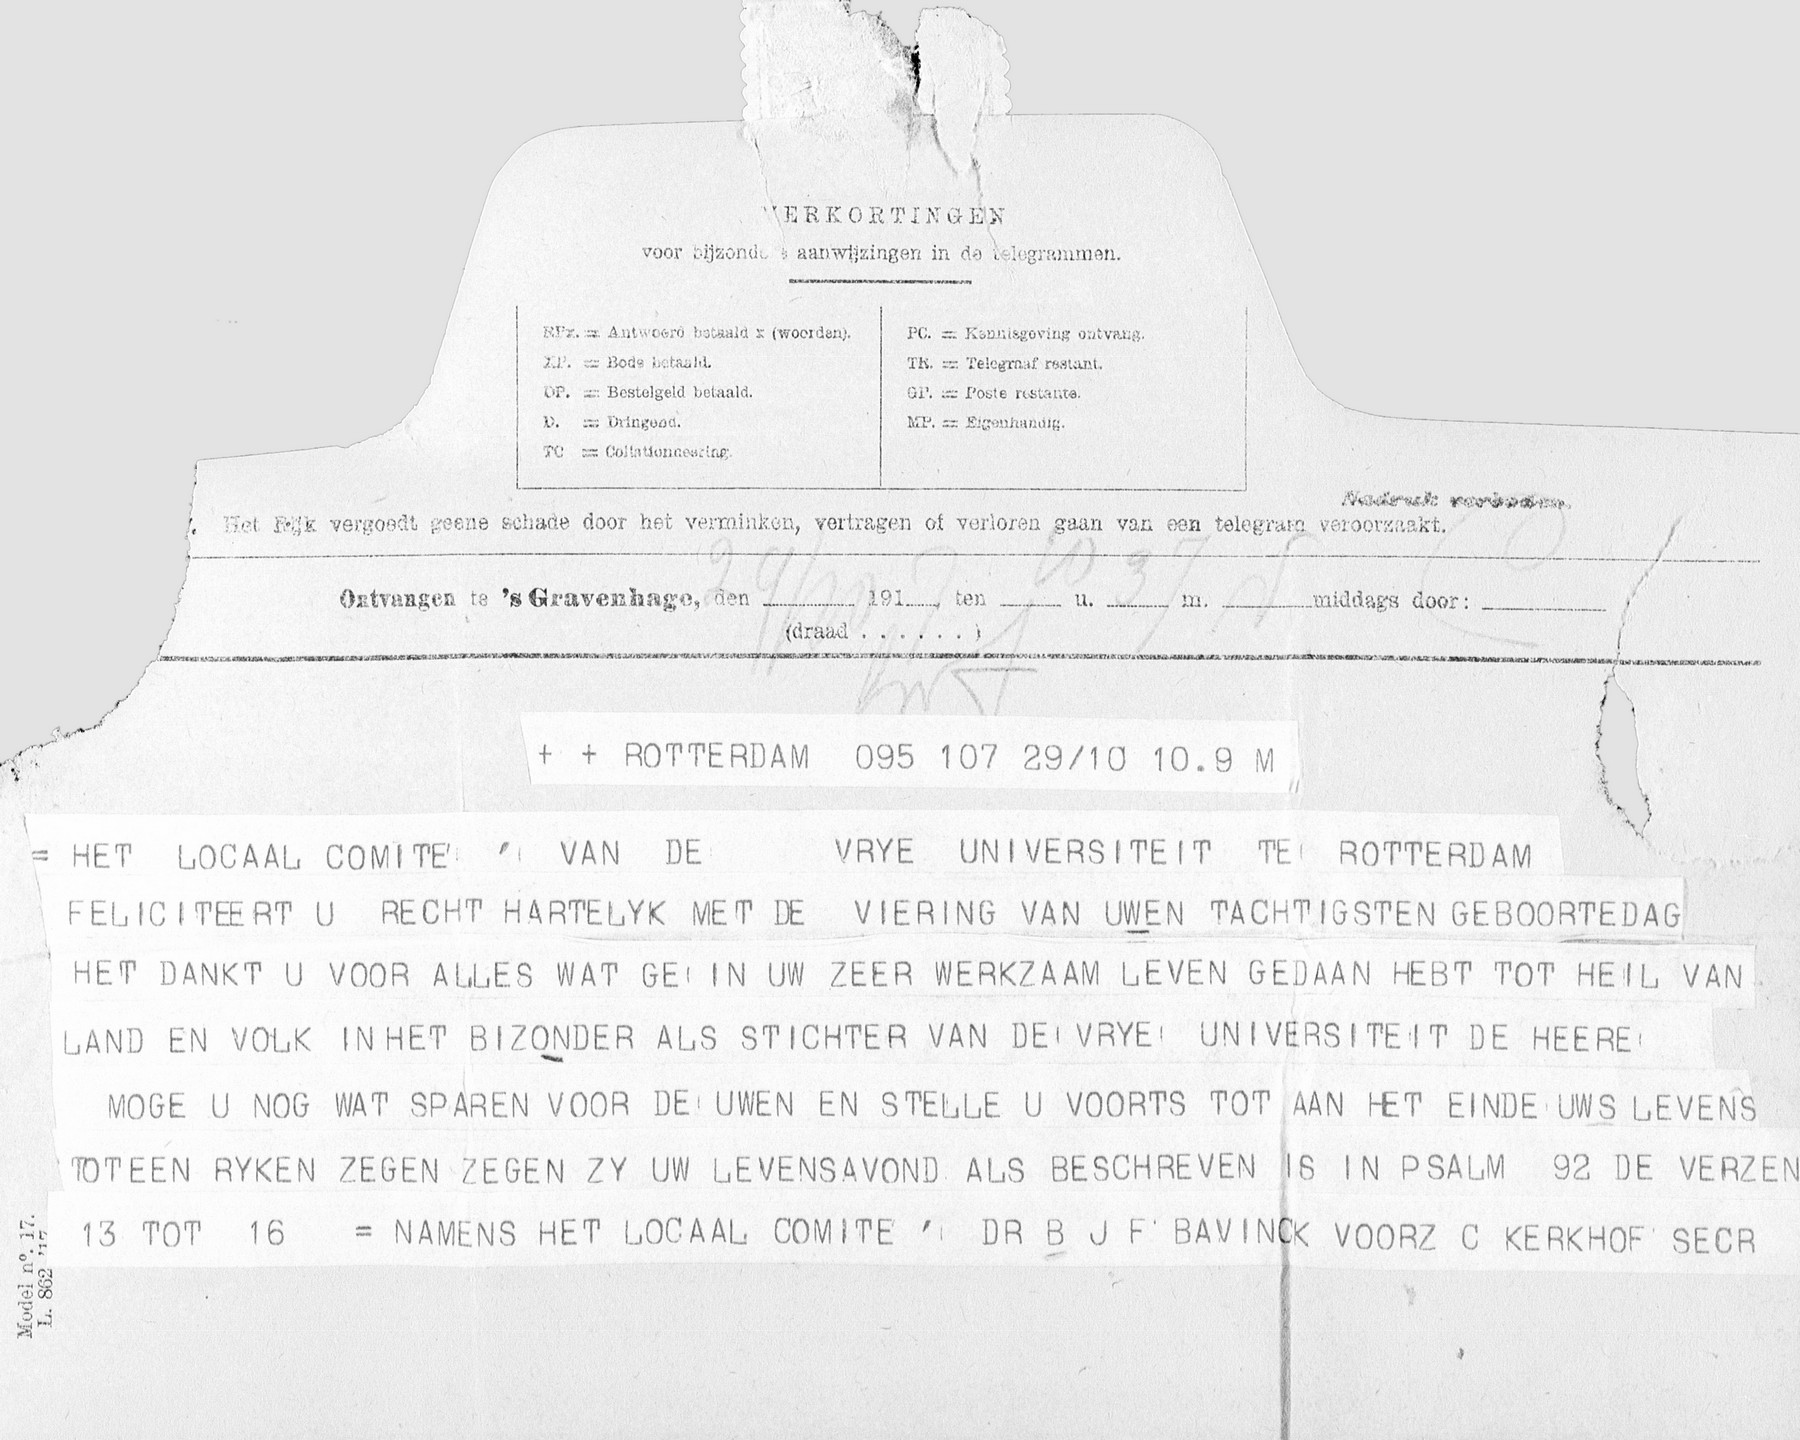 VERKORTINGEN
voor bijzondere aanwijzingen in de telegrammen.
RPx. = Antwoord betaald x (woorden).
XP. = Bode betaald.
OP. = Bestelgeld betaald.
D. = Dringend.
TC = Collationneering.
PC. = Kennisgeving ontvang.
TR. = Telegraaf restant.
GP. = Poste restante.
MP. = Eigenhandig.
Nadruk verboden.
Het Rijk vergoedt geene schade door het verminken, vertragen of verloren gaan van een telegram veroorzaakt.
Ontvangen te 's Gravenhage, den ______ 191__, ten ____ u. ____ m. ______middags door: ________
(draad . . . . . . )
+ + ROTTERDAM 095 107 29/10 10.9 M
= HET LOCAAL COMITE' ' VAN DE VRYE UNIVERSITEIT TE ROTTERDAM
FELICITEERT U RECHT HARTELYK MET DE VIERING VAN UWEN TACHTIGSTEN GEBOORTEDAG
HET DANKT U VOOR ALLES WAT GE IN UW ZEER WERKZAAM LEVEN GEDAAN HEBT TOT HEIL VAN
LAND EN VOLK IN HET BIZONDER ALS STICHTER VAN DE VRYE UNIVERSITEIT DE HEERE
MOGE U NOG WAT SPAREN VOOR DE UWEN EN STELLE U VOORTS TOT AAN HET EINDE UWS LEVENS
TOT EEN RYKEN ZEGEN ZEGEN ZY UW LEVENSAVOND ALS BESCHREVEN IS IN PSALM 92 DE VERZEN
13 TOT 16 = NAMENS HET LOCAAL COMITE ' DR B J F BAVINCK VOORZ C KERKHOF SECR
Model no. 17.
L. 862 '17